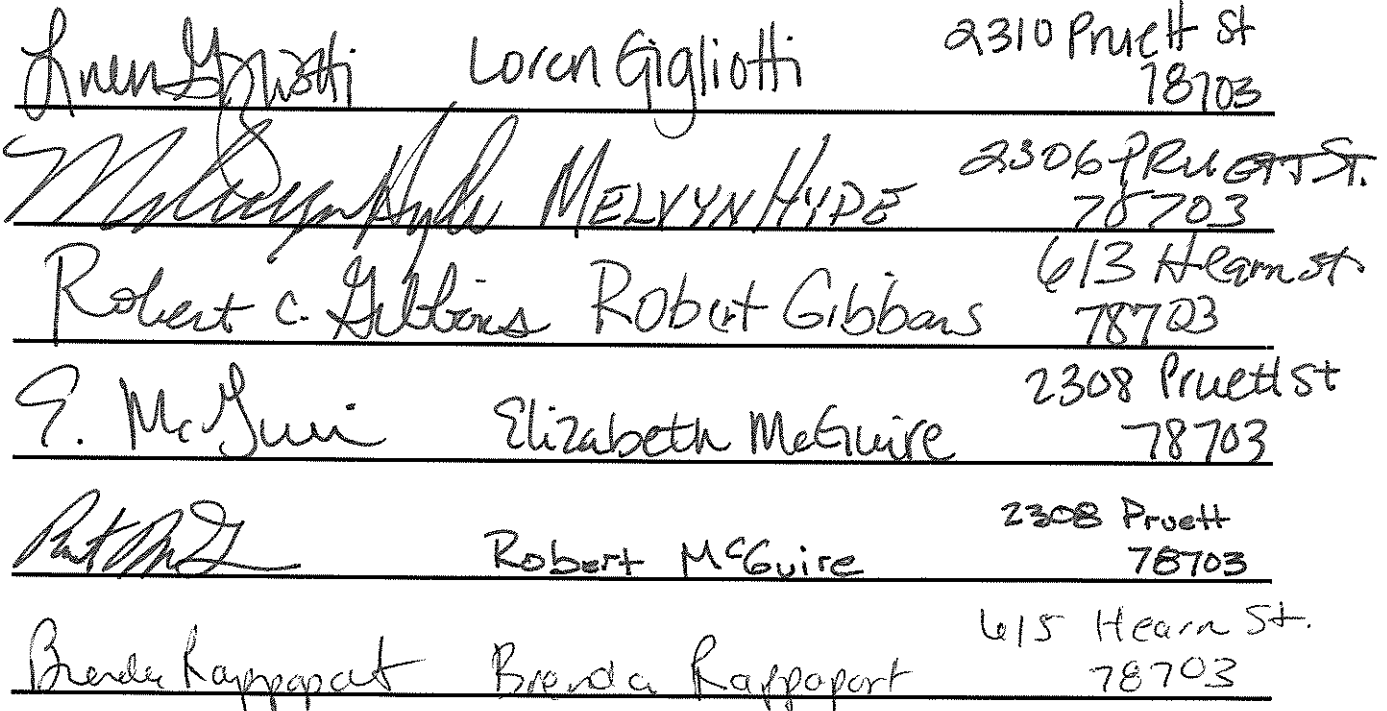 Loren Gigliotti Loren Gigliotti 2310 Pruett St
78703
Melvyn Hyde MELVYN HYDE 2306 PRUETT ST.
78703
Robert C. Gibbins Robert Gibbons 613 Hearn St
78703
E. McGuire Elizabeth McGuire 2308 Pruett St
78703
Robert McGuire 2308 Pruett
78703
Brenda Rappaport Brenda Rappoport 615 Hearn St.
78703